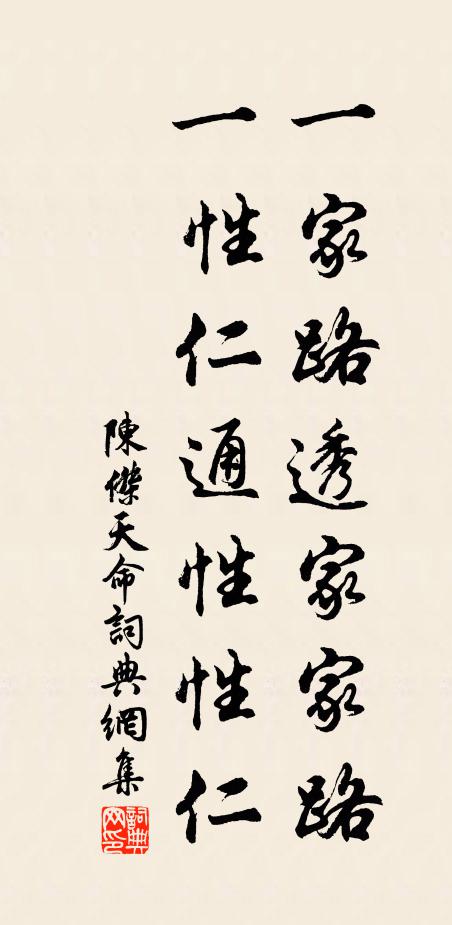 一家路透家家路
一性仁通性性仁
陳傑天命詞典網集
詞典網印